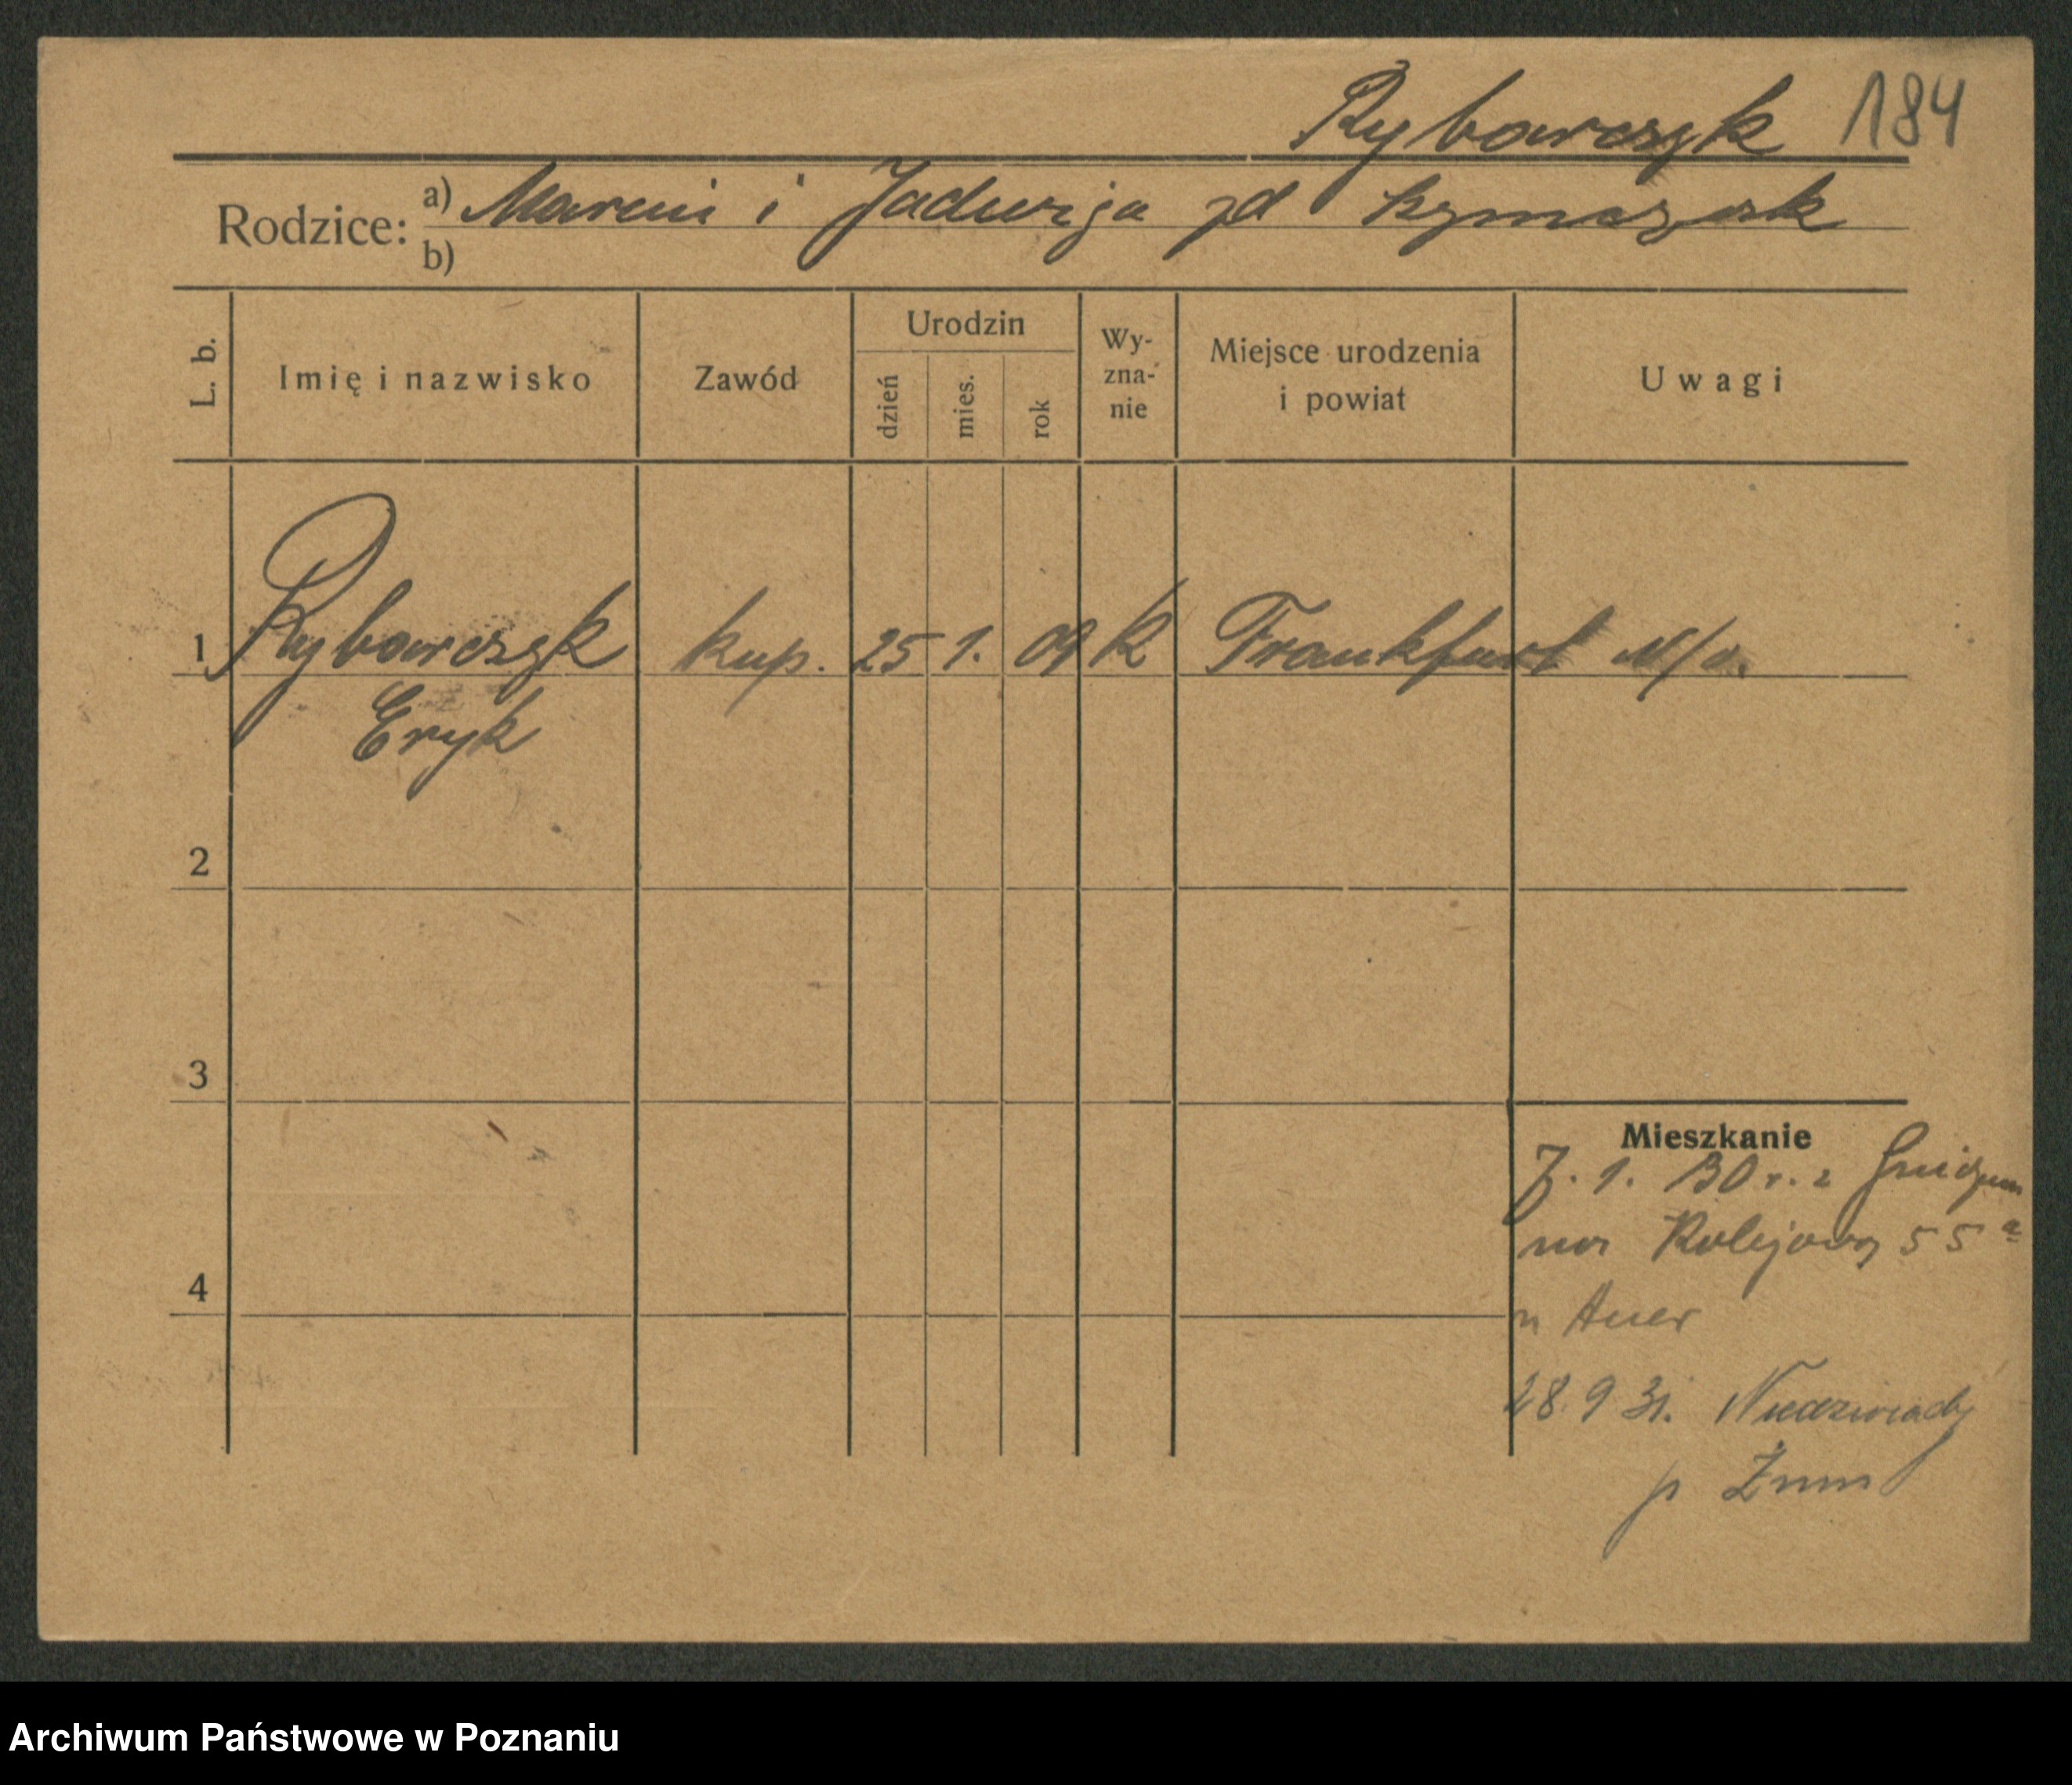 Rybarczyk 184
Rodzice: a) Marcin i Jadwiga zd Szymczak
b)
L. b.
Imię i nazwisko
Zawód
Urodzin
dzień
mies.
rok
Wy-
zna-
nie
Miejsce urodzenia
i powiat
Uwagi
1 Rybarczyk kup. 25 1. 09 K Frankfurt n/o.
Eryk
2
3
4
Mieszkanie
7. 1. 30 r. z
na Kolejową 55 a
u Auer
28. 9 31. Niedźwiady
p Żnin
Archiwum Państwowe w Poznaniu